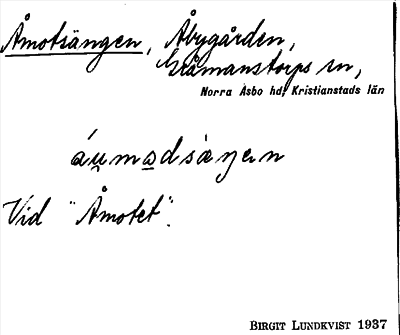 Åmotsängen, Åbygården,
Gråmanstorps sn,
Norra Åsbo hd, Kristianstads län
Vid "Åmotet".
BIRGIT LUNDKVIST 1937